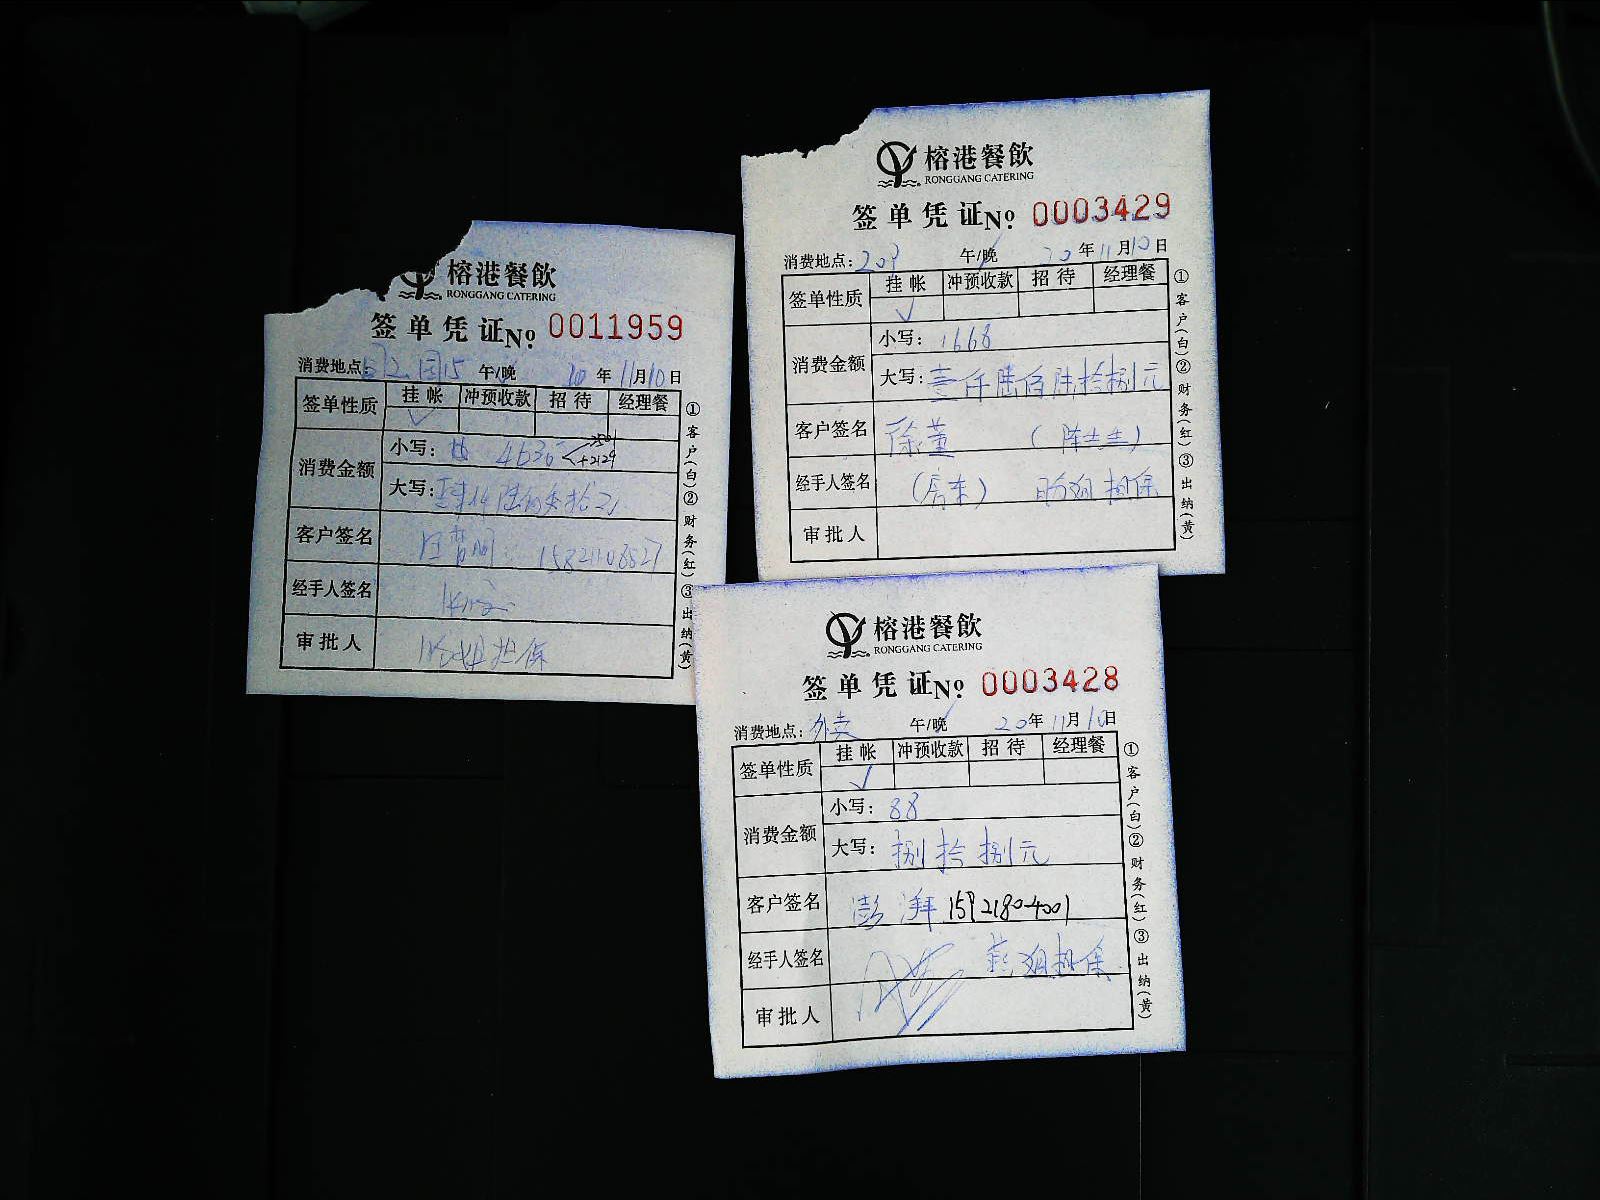 榕港餐飲
RONGGANG CATERING
签单凭证No. 0011959
消费地点: 午/晚 20年11月10日
签单性质 挂帐 冲预收款 招待 经理餐
✓
消费金额
小写: 4630 +2129
大写:
客户签名
经手人签名
审批人 担保
①客户(白)②财务(红)③出纳(黄)
榕港餐飲
RONGGANG CATERING
签单凭证No. 0003429
消费地点:209 午/晚 20年11月10日
签单性质 挂帐 冲预收款 招待 经理餐
✓
消费金额
小写: 1668
大写: 壹仟陆佰陆拾捌元
客户签名 徐董 (陈生生)
经手人签名 (房东) 担保
审批人
①客户(白)②财务(红)③出纳(黄)
榕港餐飲
RONGGANG CATERING
签单凭证No. 0003428
消费地点:外卖 午/晚 20年11月10日
签单性质 挂帐 冲预收款 招待 经理餐
✓
消费金额
小写: 88
大写: 捌拾捌元
客户签名 澎湃 15921804001
经手人签名 担保
审批人
①客户(白)②财务(红)③出纳(黄)